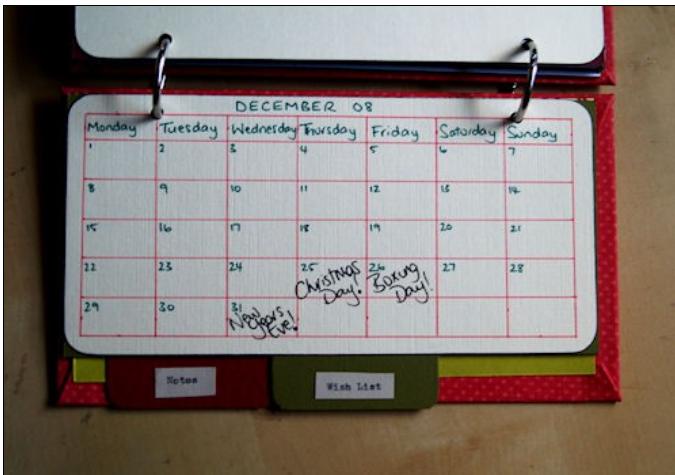 DECEMBER 08
Monday Tuesday Wednesday Thursday Friday Saturday Sunday
1 2 3 4 5 6 7
8 9 10 11 12 13 14
15 16 17 18 19 20 21
22 23 24 25 26 27 28
Christmas Boxing
Day! Day!
29 30 31
New
Years
Eve!
Notes
Wish List